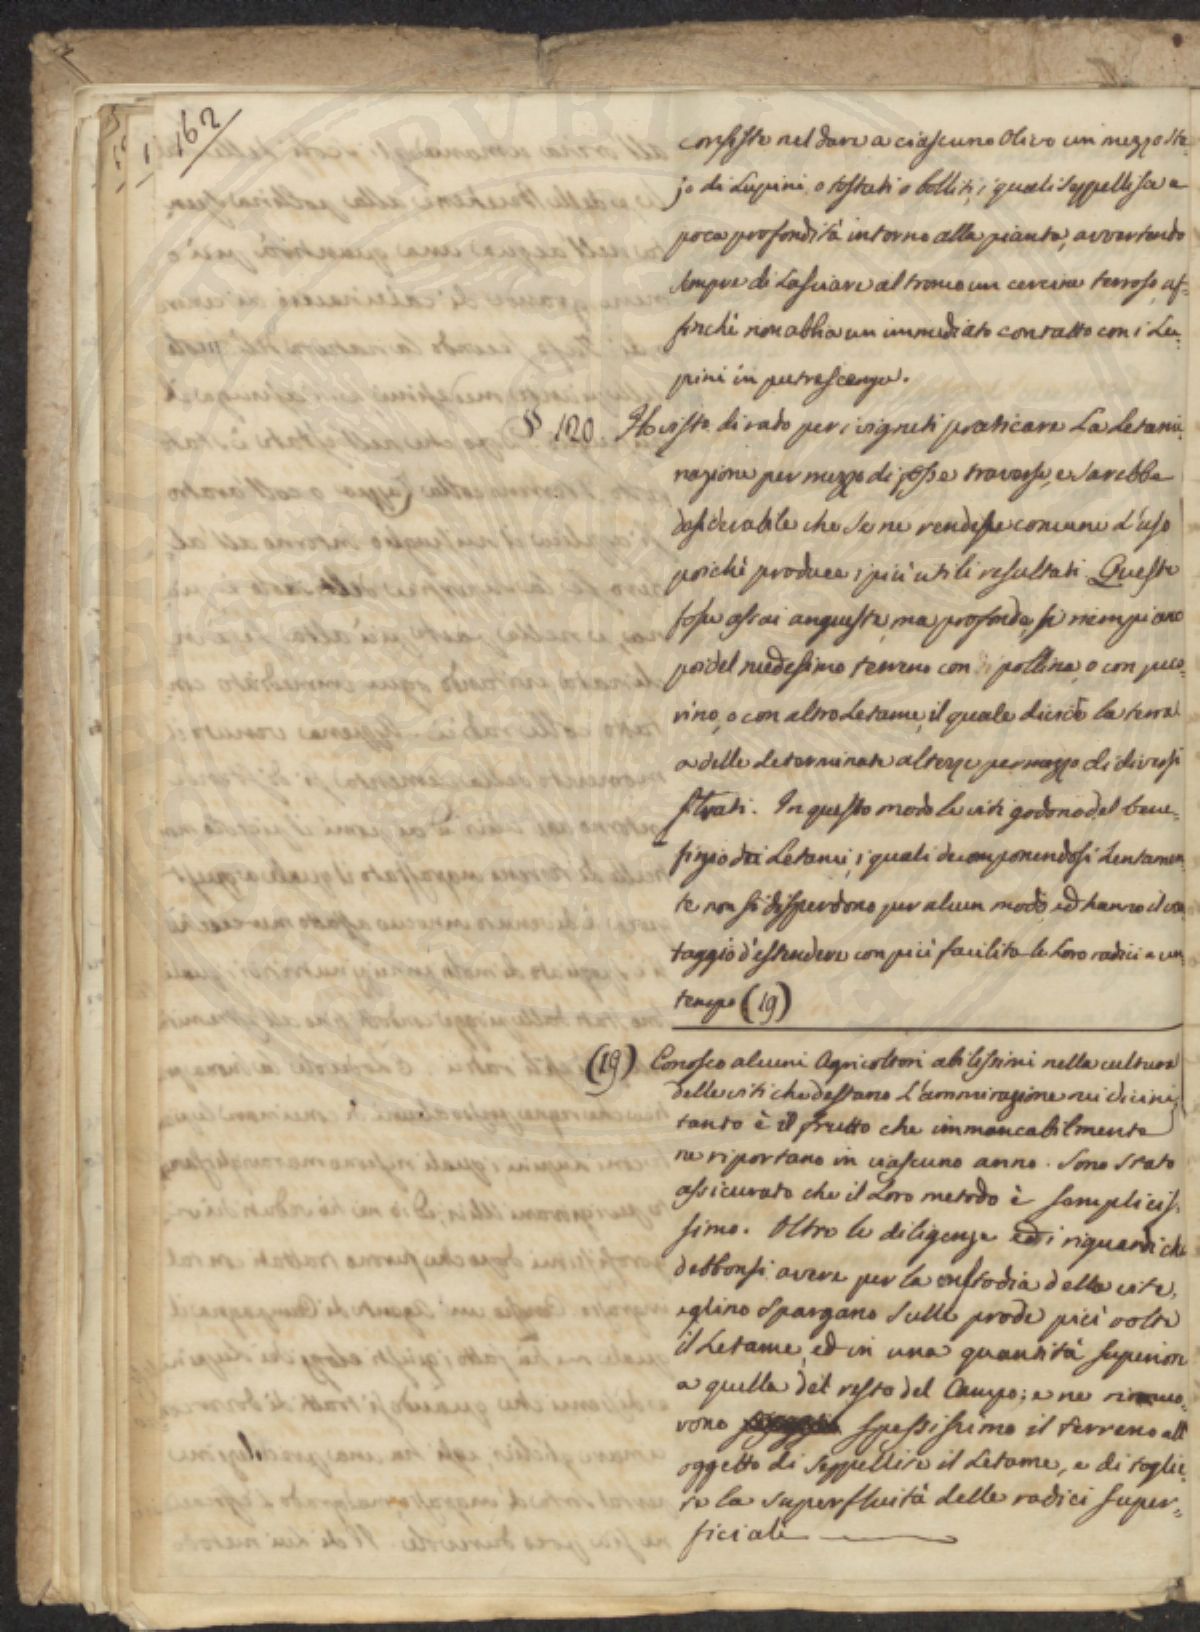 162
consiste nel dare a ciascuno Olivo un mezzo sta-
jo di Lupini, o tostati o bolliti, i quali seppellisce a
poca profondità intorno alla pianta, avvertendo
sempre di lasciare al tronco un cercine terroso af-
finchè non abbia un immediato contatto con i Lu-
pini in putrescenza.
§ 120 Ho visto di rado per i vigneti praticare La Letami-
nazione per mezzo di fosse traverse, e sarebbe
desiderabile che se ne rendesse comune L'uso
poichè produce i più utili resultati. Queste
fosse assai anguste, ma profonde, si riempiano
poi del medesimo terreno con pollina, o con peco-
rino, o con altro Letame, il quale divide la terra
a delle determinate altezze per mezzo di diversi
strati. In questo modo le viti godono del bene-
fizio dei Letami, i quali decomponendosi Lentamen-
te non si disperdono per alcun modo, ed hanno il van-
taggio d'estendere con più facilità le Loro radici a un
tempo (19)
(19) Conosco alcuni Agricoltori abilissimi nella cultura
delle viti che destano L'ammirazione nei vicini,
tanto è il frutto che immancabilmente
ne riportano in ciascuno anno. Sono stato
assicurato che il Loro metodo è semplicis-
simo. Oltre le diligenze ed i riguardi che
debbonsi avere per la custodia della vite,
eglino spargano sulle prode più volte
il Letame, ed in una quantità superiore
a quella del resto del Campo; e ne rimuo-
vono spessissimo il terreno all'
oggetto di seppellire il Letame, e di toglie-
re la superfluità delle radici super-
ficiali